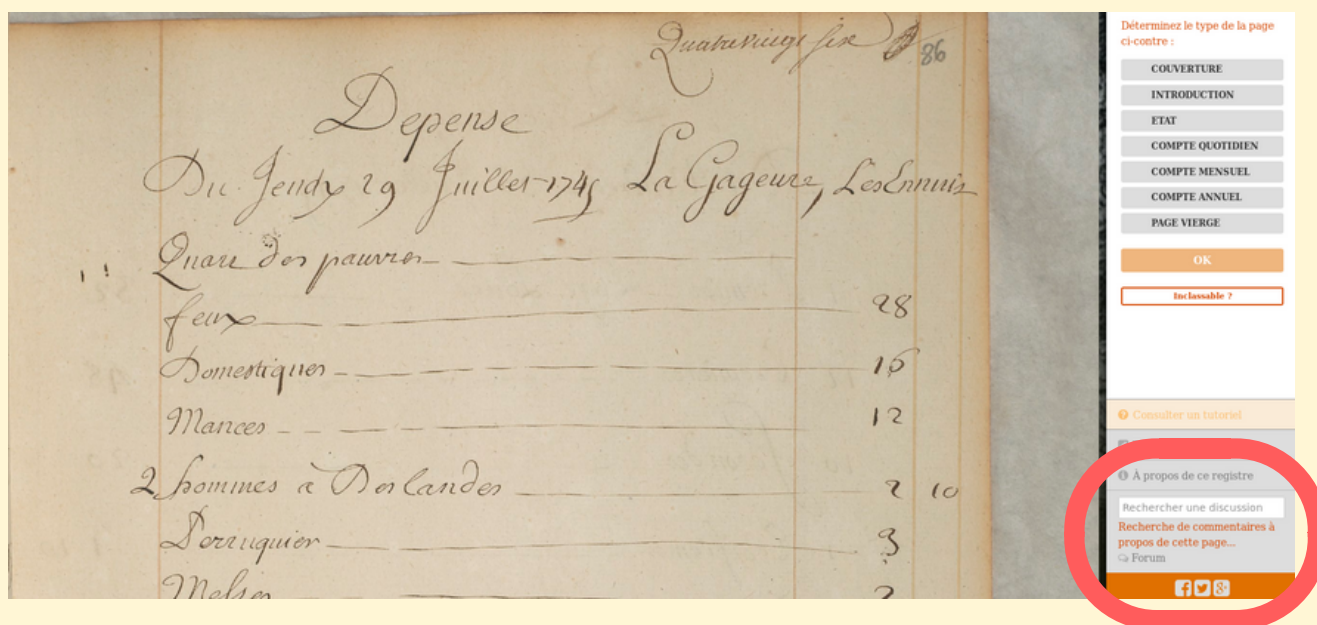 Quatrevingt six 86
Depense
Du Jeudy 29 Juillet 1745 La Gageure, Les Ennuis
Quart des pauvres
feux 28
Domestiques 16
Mances 12
2 hommes a Des landes 2 10
Perruquier 3
2
Déterminez le type de la page
ci-contre :
COUVERTURE
INTRODUCTION
ETAT
COMPTE QUOTIDIEN
COMPTE MENSUEL
COMPTE ANNUEL
PAGE VIERGE
OK
Inclassable ?
Consulter un tutoriel
À propos de ce registre
Rechercher une discussion
Recherche de commentaires à
propos de cette page...
Forum